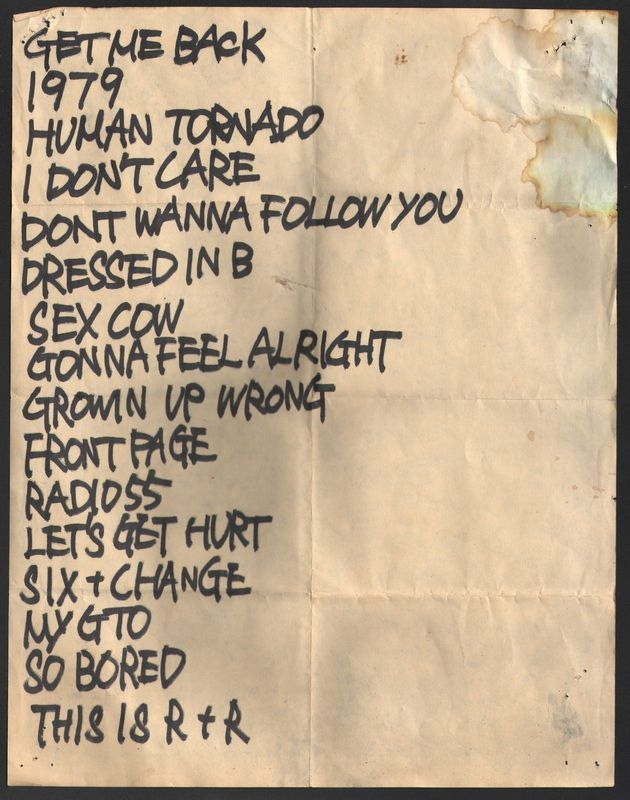 GET ME BACK
1979
HUMAN TORNADO
I DON'T CARE
DONT WANNA FOLLOW YOU
DRESSED IN B
SEX COW
GONNA FEEL ALRIGHT
GROWIN UP WRONG
FRONT PAGE
RADIO 55
LET'S GET HURT
SIX + CHANGE
MY GTO
SO BORED
THIS IS R + R